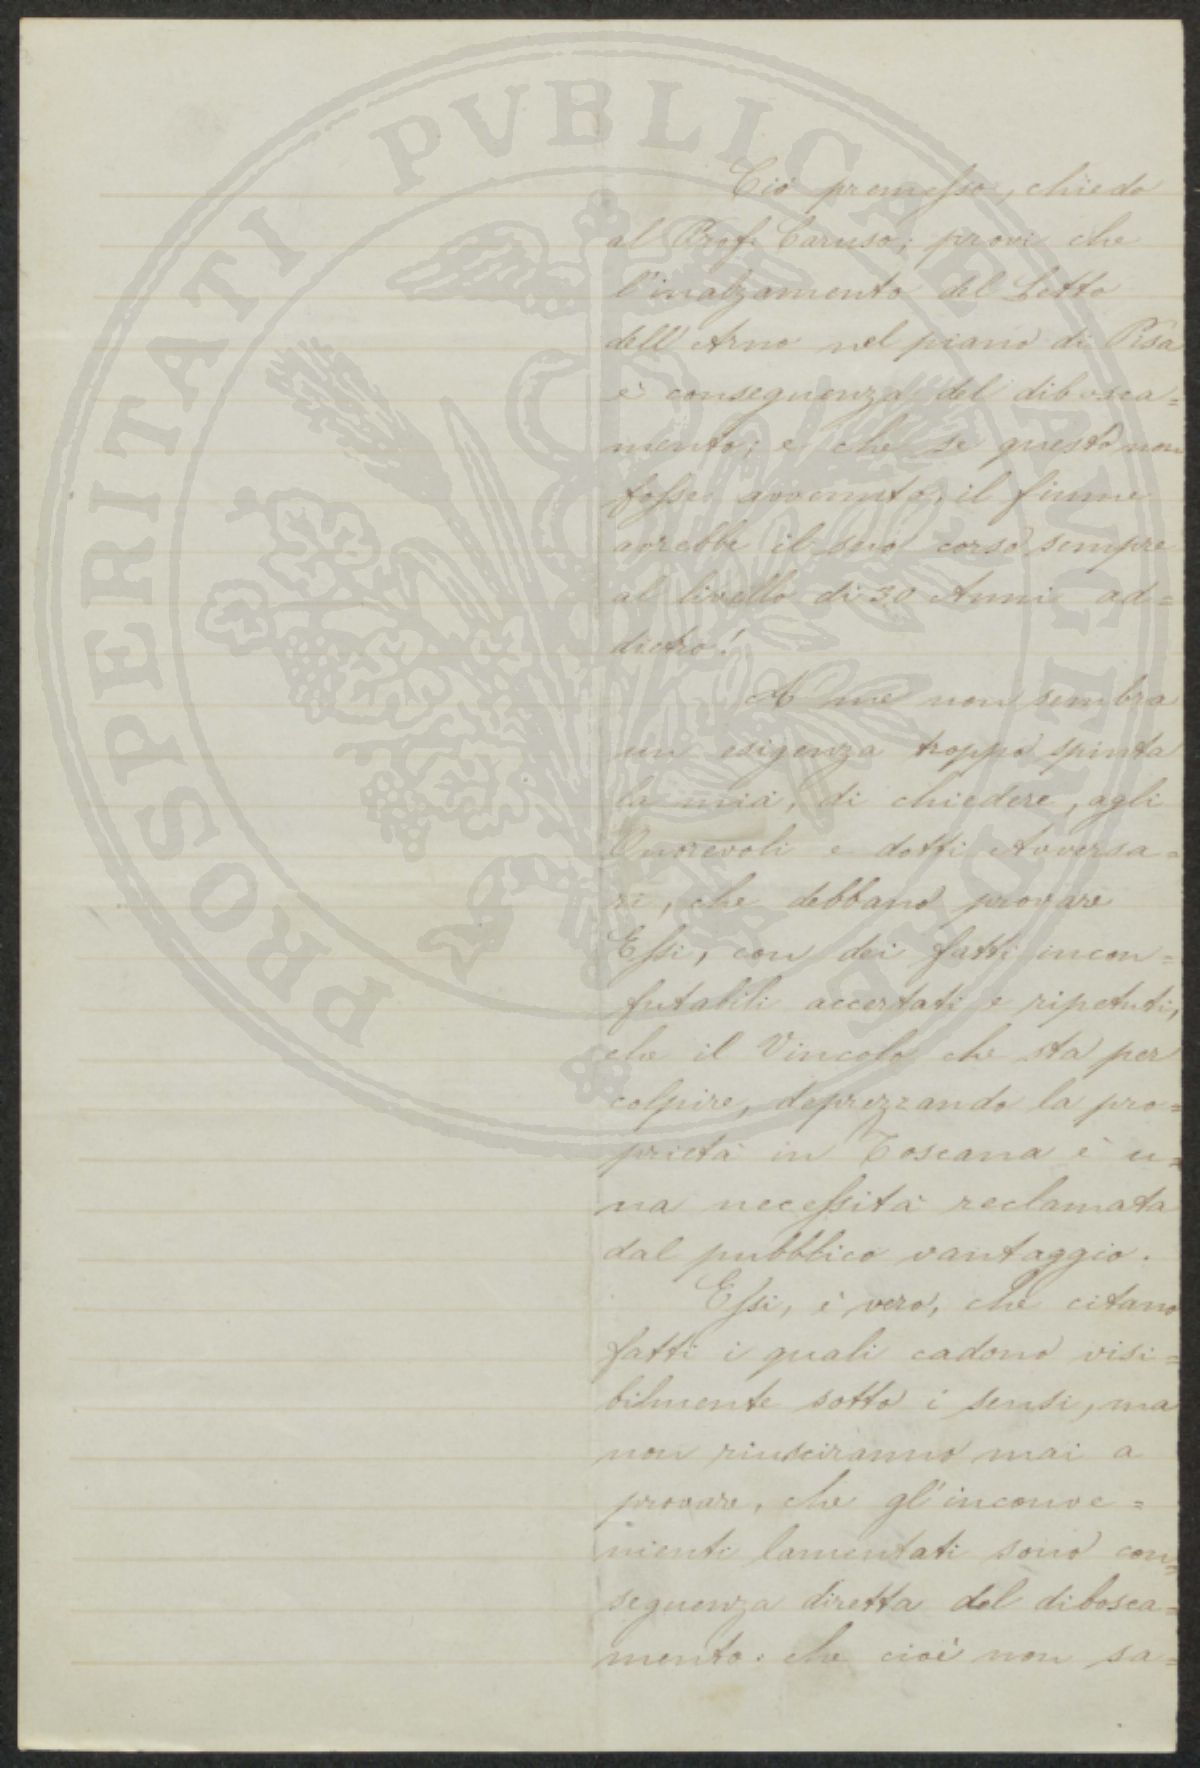 Ciò premesso, chiedo
al Prof. Caruso; provi che
l'inalzamento del Letto
dell'Arno nel piano di Pisa
è conseguenza del dibosca=
mento; e che se questo non
fosse avvenuto, il fiume
avrebbe il suo corso sempre
al livello di 30 Anni ad=
dietro!
A me non sembra
un esigenza troppo spinta
la mia, di chiedere, agli
Onorevoli e dotti Avversa=
ri, che debbano provare
Essi, con dei fatti incon=
futabili accertati e ripetuti,
che il Vincolo che sta per
colpire, deprezzando la pro=
prietà in Toscana è u=
na necessità reclamata
dal pubblico vantaggio.
Essi, è vero, che citano
fatti i quali cadono visi=
bilmente sotto i sensi, ma
non riusciranno mai a
provare, che gl'inconve=
nienti lamentati sono con=
seguenza diretta del dibosca=
mento: che cioè non sa=
PROSPERITATI PVBLICAE AVGENDAE